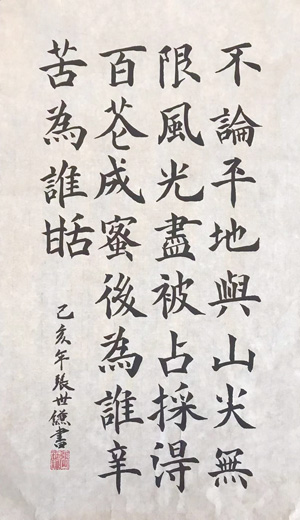 不論平地與山尖無
限風光盡被占採得
百花成蜜後為誰辛
苦為誰甛
己亥年張世書